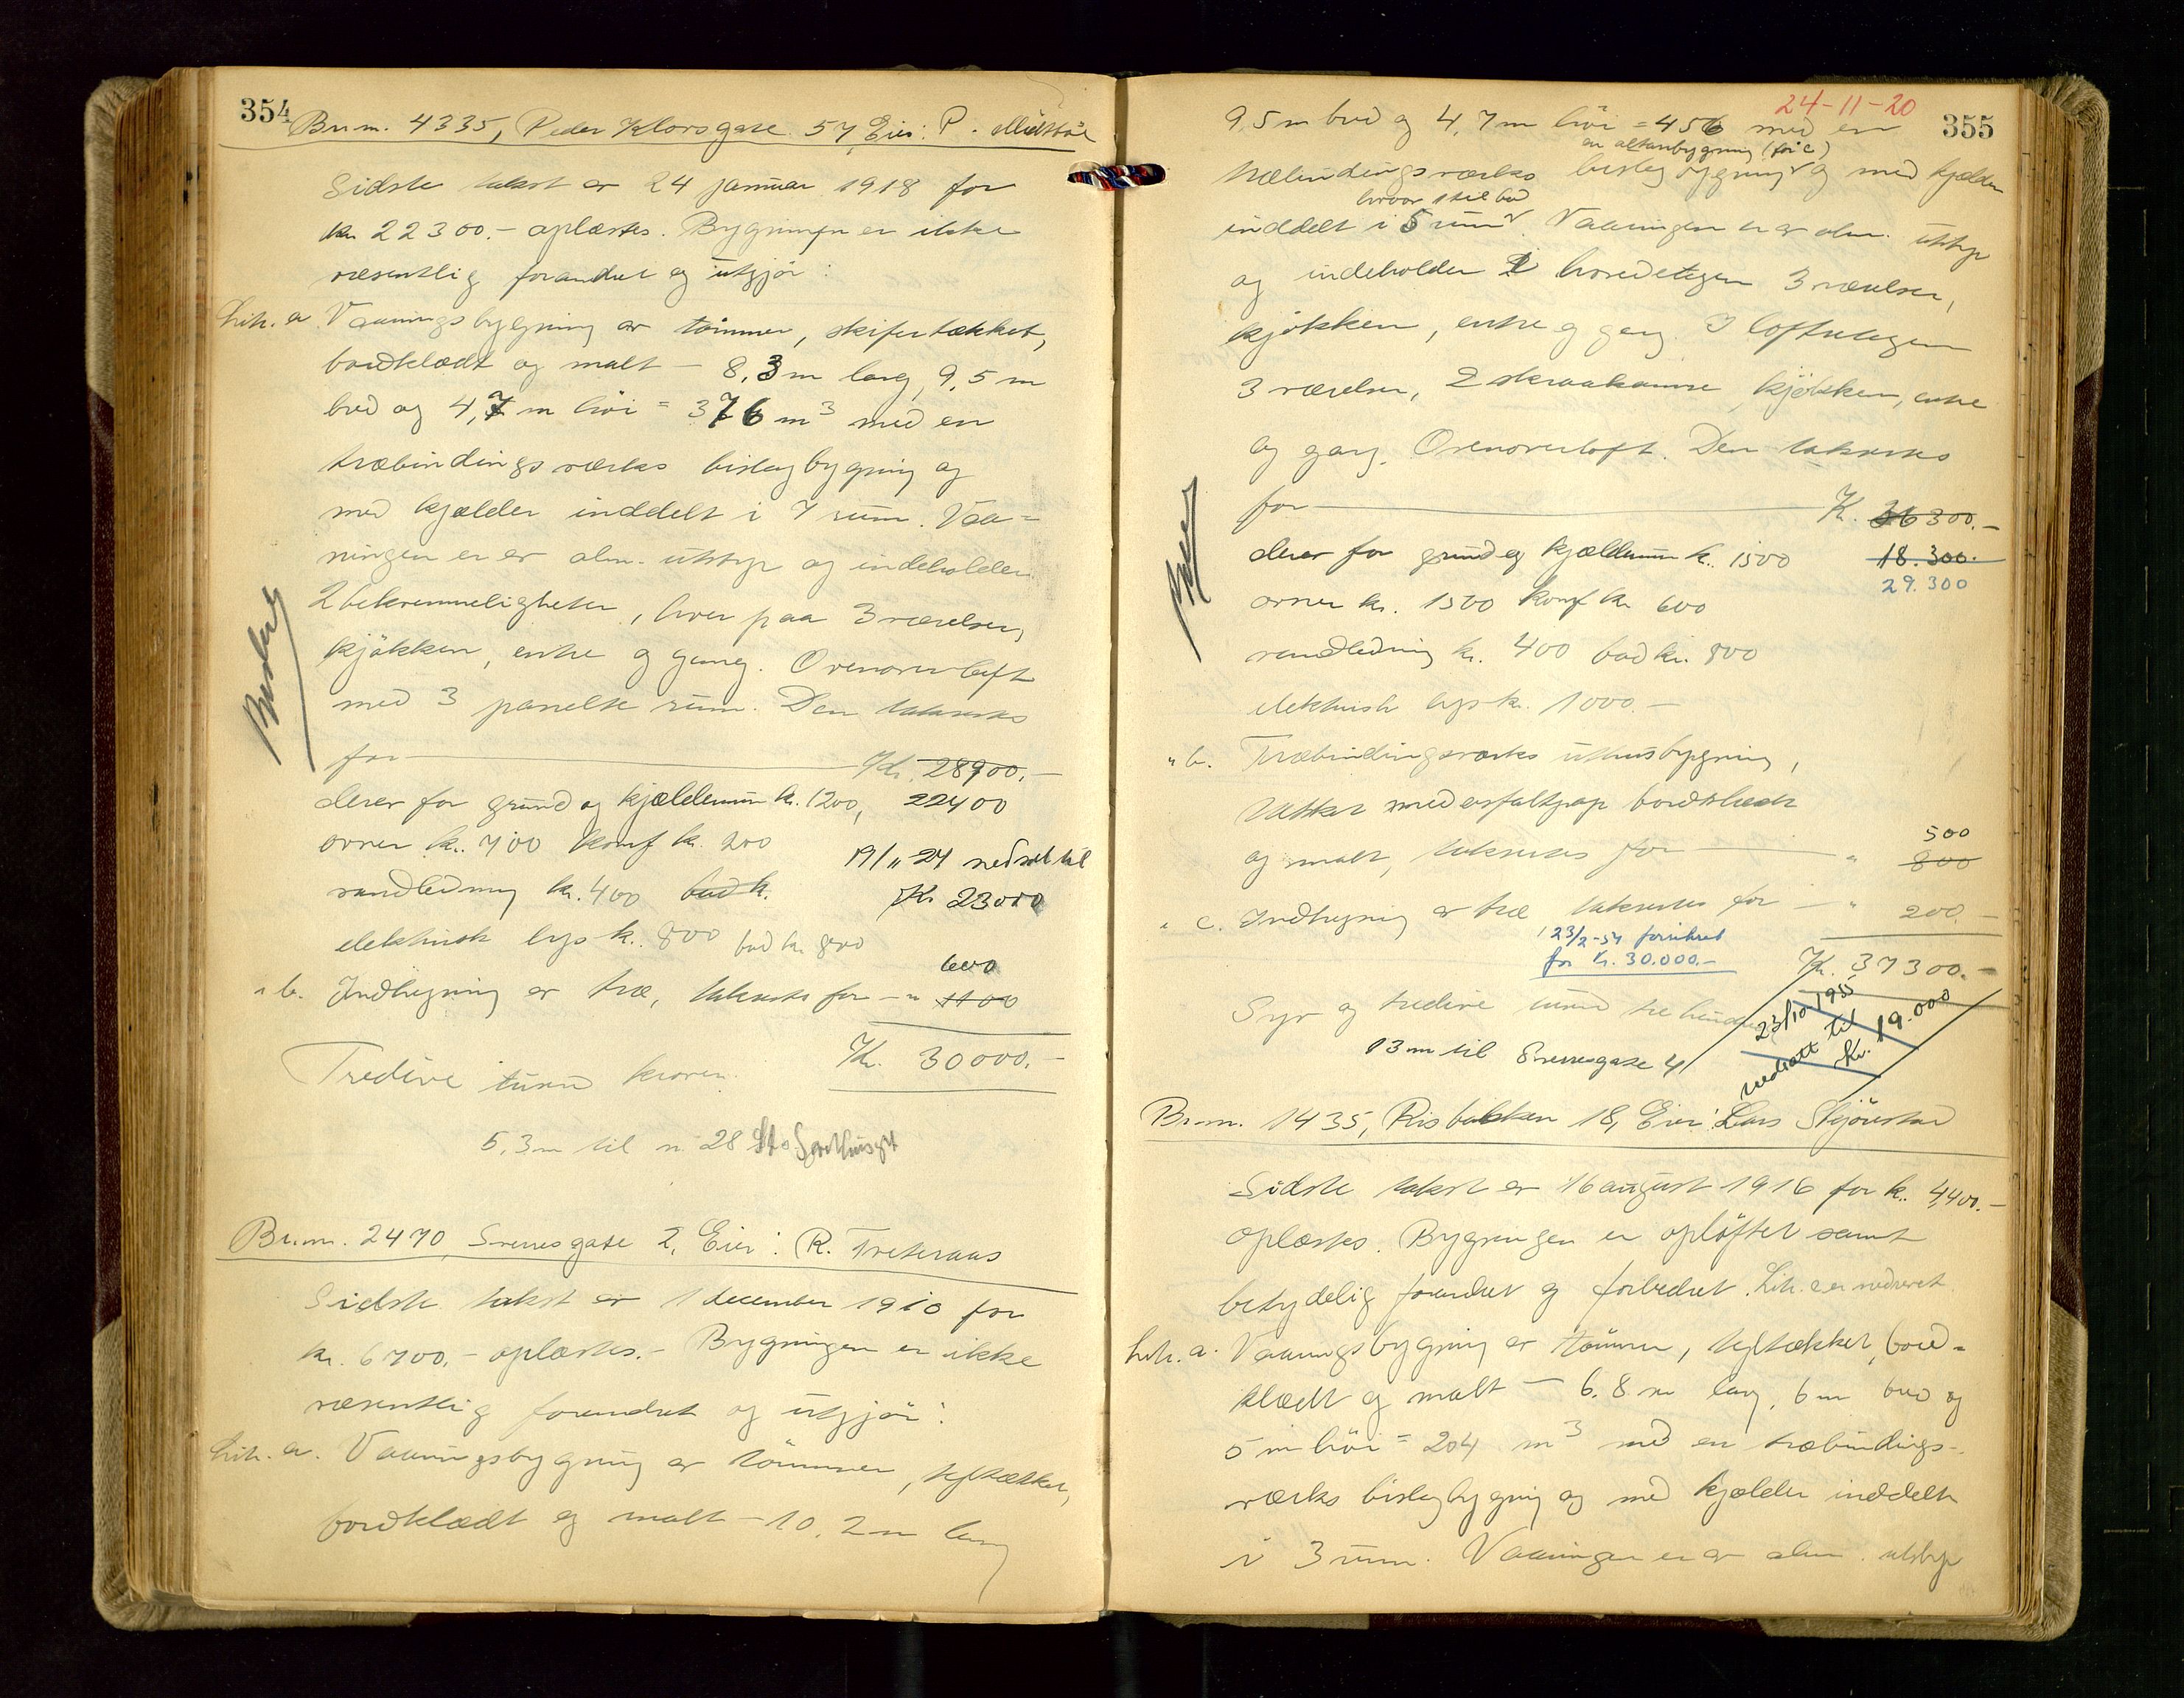 354
Br.nr. 4335, Peder Klovsgate 57, Eier: P. Midtböe
Sidste takst er 24 januar 1918 for
kr. 22300.- oplæstes. Bygningen er ikke
væsentlig forandret og utgjör:
Litr. a. Vaaningsbygning av tömmer, skifertækket,
bordklædt og malt - 8,3 m lang, 9,5 m
bred og 4,7 m höi = 376 m³ med en
træbindingsværks bislagbygning og
med kjælder inddelt i 7 rum. Vaa-
ningen er av alm. utstyr og indeholder
2 bekvemmeligheter, hver paa 3 værelser,
kjökken, entre og gang. Ovenoverloft
med 3 panelte rum. Den takseres
for Kr. 28900.-
derav for grund og kjælderrum kr. 1200, 22400
ovner kr. 700 komf kr. 200
19/11 24 nedsat til
vandledning kr. 400 bad k.
Kr 23000
elektrisk lys kr. 800 bad kr. 800
600
" b. Indhegning av træ, takseres for - " 1100
Kr. 30000.-
Tredive tusen kroner.
5,3 m til nr. 28
Br.nr. 2470, Sverresgate 2, Eier: R. Treteraas
Sidste takst er 1 december 1910 for
kr. 6700.- oplæstes.- Bygningen er ikke
væsentlig forandret og utgjör:
Litr. a. Vaaningsbygning av tömmer, tegltækket,
bordklædt og malt - 10,2 m lang
24-11-20
355
9,5 m bred og 4,7 m höi = 456 med en
en altanbygning (for c)
træbindingsværks bislagbygning og med kjælder
hvorav 1 til bad
inddelt i 5 rum. Vaaningen er av alm. utstyr
og indeholder i hovedetagen 3 værelser,
kjökken, entre og gang. I loftsetagen
3 værelser, 2 skraakamre, kjökken, entre
og gang. Ovenoverloft. Den takseres
for Kr. 36300.-
derav for grund og kjælderrum kr. 1500 18.300.-
29.300
ovner kr. 1500 komf kr 600
vandledning kr. 400 bad kr. 800
elektrisk lys kr. 1000.-
" b. Træbindingsværks uthusbygning,
tækket med asfaltpap bordklædt
500
og malt, takseres for " 800
" c. Indhegning av træ takseres for - " 200.-
23/2-54 forsikret
for Kr. 30.000.-
Kr. 37300.-
Syv og tredive tusen tre hundre
23/10 1935
nedsatt til
Kr. 19.000
13 m til Sverresgate 4
Br.nr. 1435, Risbakken 18, Eier: Lars Skjörestad
Sidste takst er 16 august 1916 for kr. 4,400.-
oplæstes. Bygningen er oplöftet samt
betydelig forandret og forbedret. Litr. c er nedrevet.
Litr. a. Vaaningsbygning av tömmer, tegltækket, bord-
klædt og malt - 6,8 m lang, 6 m bred og
5 m höi = 204 m³ med en træbindings-
værks bislagbygning og med kjælder inddelt
i 3 rum. Vaaningen er av alm. utstyr